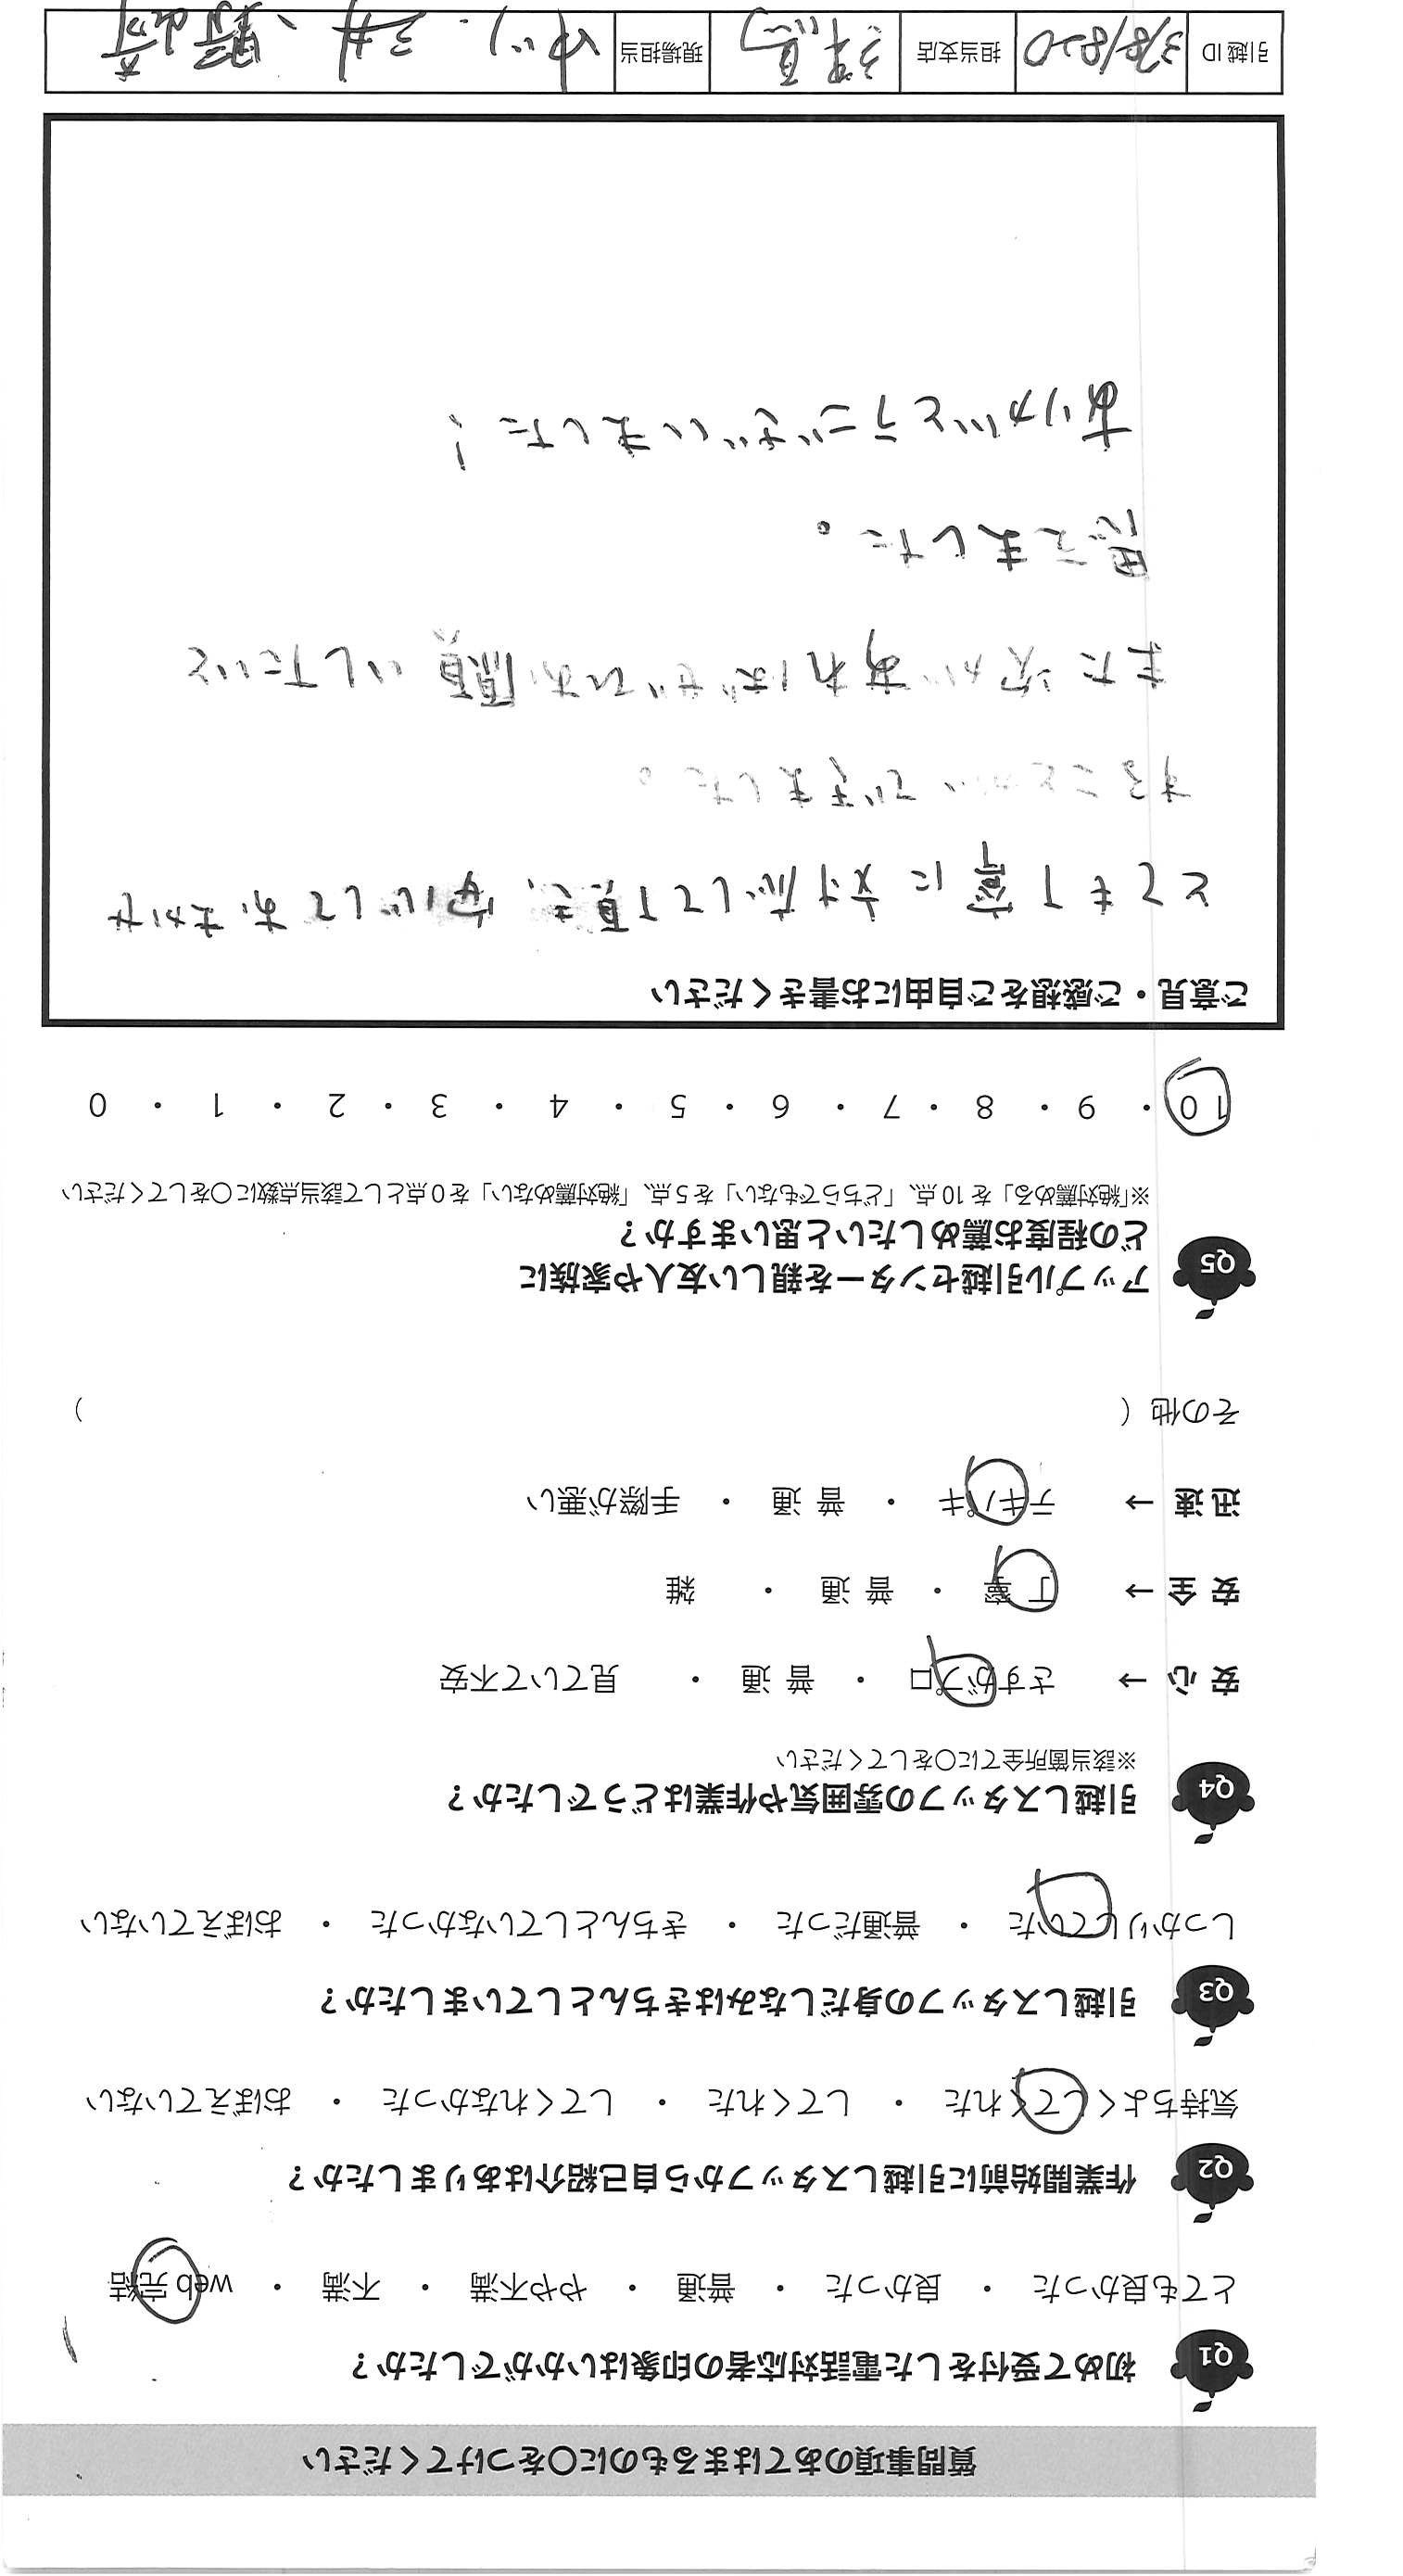 質問事項のあてはまるものに〇をつけてください
Q1 初めて受付をした電話対応者の印象はいかがでしたか？
とても良かった ・ 良かった ・ 普通 ・ やや不満 ・ 不満 ・ web 完結
Q2 作業開始前に引越しスタッフから自己紹介はありましたか？
気持ちよくしてくれた ・ してくれた ・ してくれなかった ・ おぼえていない
Q3 引越しスタッフの身だしなみはきちんとしていましたか？
しっかりしていた ・ 普通だった ・ きちんとしていなかった ・ おぼえていない
Q4 引越しスタッフの雰囲気や作業はどうでしたか？
※該当箇所全てに〇をしてください
安心 → さすがプロ ・ 普通 ・ 見ていて不安
安全 → 丁寧 ・ 普通 ・ 雑
迅速 → テキパキ ・ 普通 ・ 手際が悪い
その他（ ）
Q5 アップル引越センターを親しい友人や家族に
どの程度お薦めしたいと思いますか？
※「絶対薦める」を10点、「どちらでもない」を5点、「絶対薦めない」を0点として該当点数に〇をしてください
10 ・ 9 ・ 8 ・ 7 ・ 6 ・ 5 ・ 4 ・ 3 ・ 2 ・ 1 ・ 0
ご意見・ご感想をご自由にお書きください
とても丁寧に対応して頂き、安心しておまかせ
することができました。
また次があればぜひお願いしたいと
思えました。
ありがとうございました！
引越ID 担当支店 現場担当